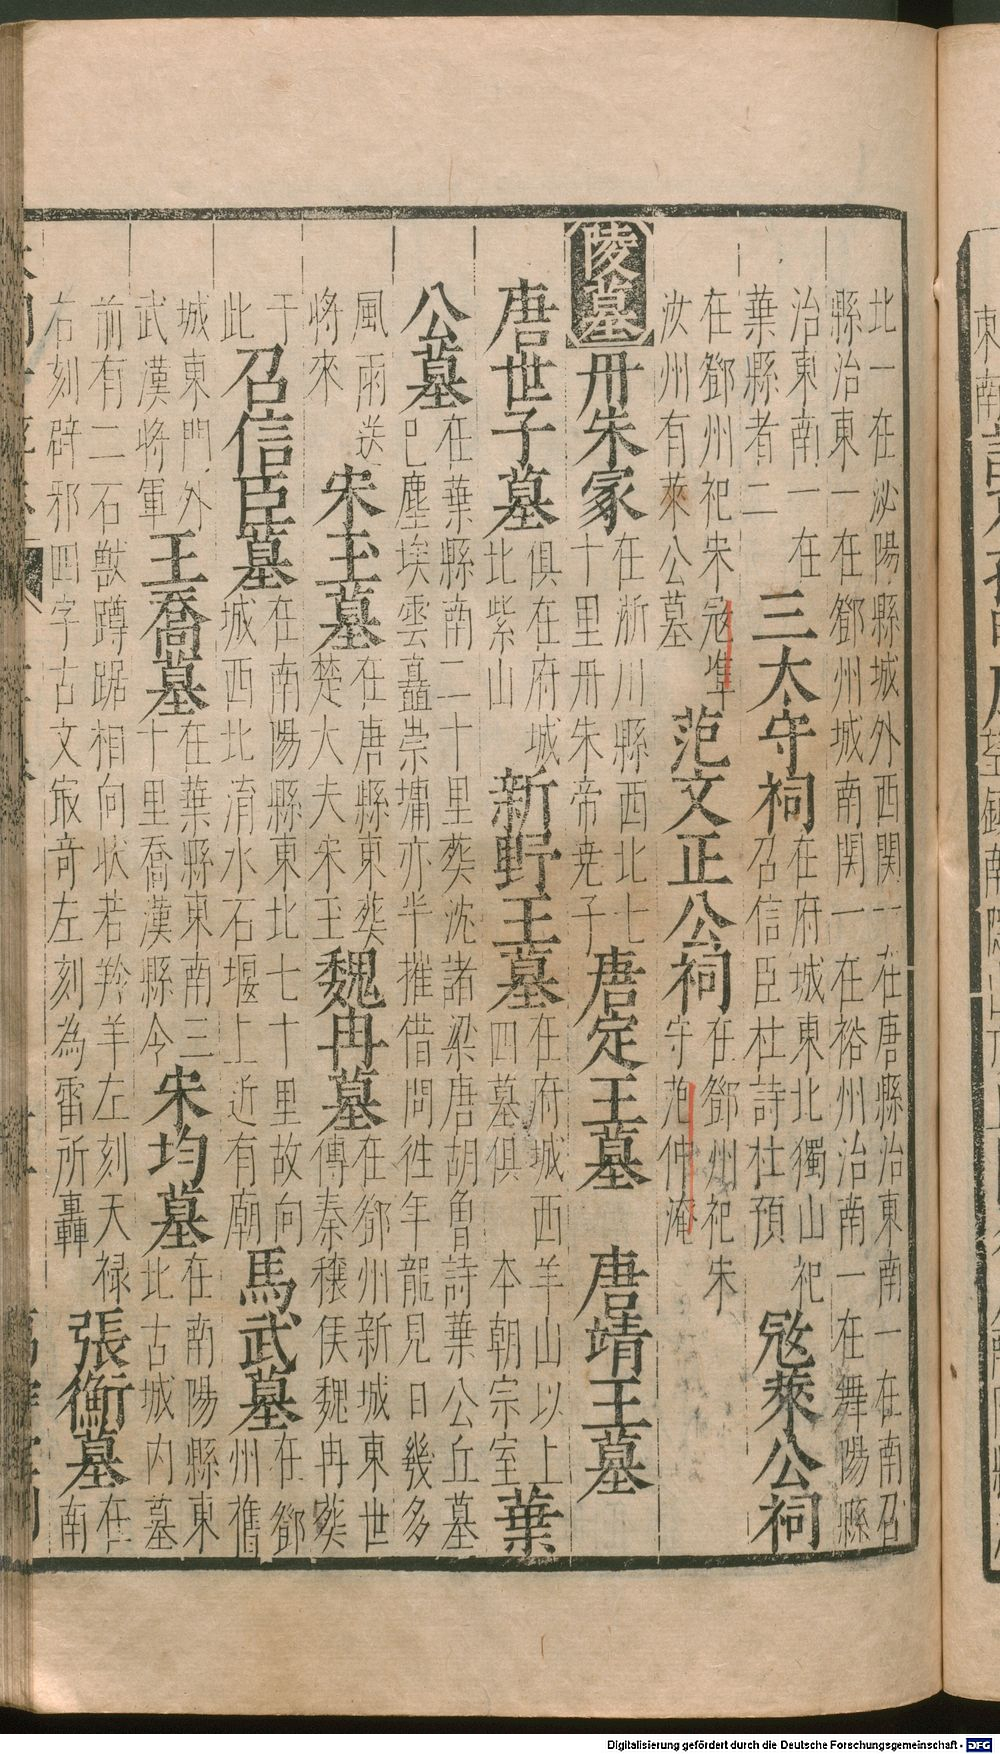 北一在泌陽縣城外西関一在唐縣治東南一在南召
縣治東一在鄧州城南関一在裕州治南一在舞陽縣
治東南一在
葉縣者二
三太守祠
在府城東北獨山祀
召信臣杜詩杜預
冦萊公祠
在鄧州祀宋冦凖
汝州有萊公墓
范文正公祠
在鄧州祀宋
守范仲淹
陵墓
丹朱冢
在淅川縣西北七
十里丹朱帝尭子
唐定王墓
唐靖王墓
唐世子墓
俱在府城
北紫山
新野王墓
在府城西羊山以上
四墓俱 本朝宗室
葉
公墓
在葉縣南二十里葵沈諸梁唐胡曽詩葉公丘墓
已塵埃雲矗崇墉亦半摧借問徃年龍見日幾多
風雨送
將來
宋玉墓
在唐縣東葵
楚大夫宋玉
魏冉墓
在鄧州新城東世
傳秦穰侯魏冉葵
于
此
召信臣墓
在南陽縣東北七十里故向
城西北淯水石堰上近有廟
馬武墓
在鄧
州舊
城東門外
武漢將軍
王喬墓
在葉縣東南三
十里喬漢縣令
宋均墓
在南陽縣東
北古城内墓
前有二石獸蹲踞相向状若羚羊左刻天禄
右刻辟邪四字古文㝡竒左刻為雷所轟
張衡墓
在
南
東南
Digitalisierung gefördert durch die Deutsche Forschungsgemeinschaft - DFG